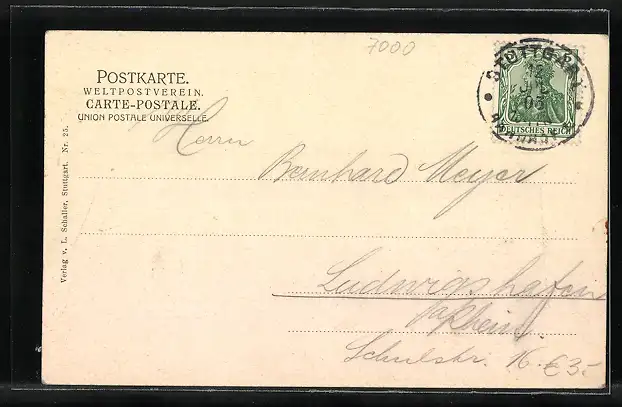 7000
POSTKARTE.
WELTPOSTVEREIN.
CARTE-POSTALE.
UNION POSTALE UNIVERSELLE.
STUTTGART
05
DEUTSCHES REICH
Herrn
Bernhard Meyer
Ludwigshafen
a/Rhein
Schulstr. 16. € 3.-
Verlag v. L. Schaller, Stuttgart. Nr. 25.